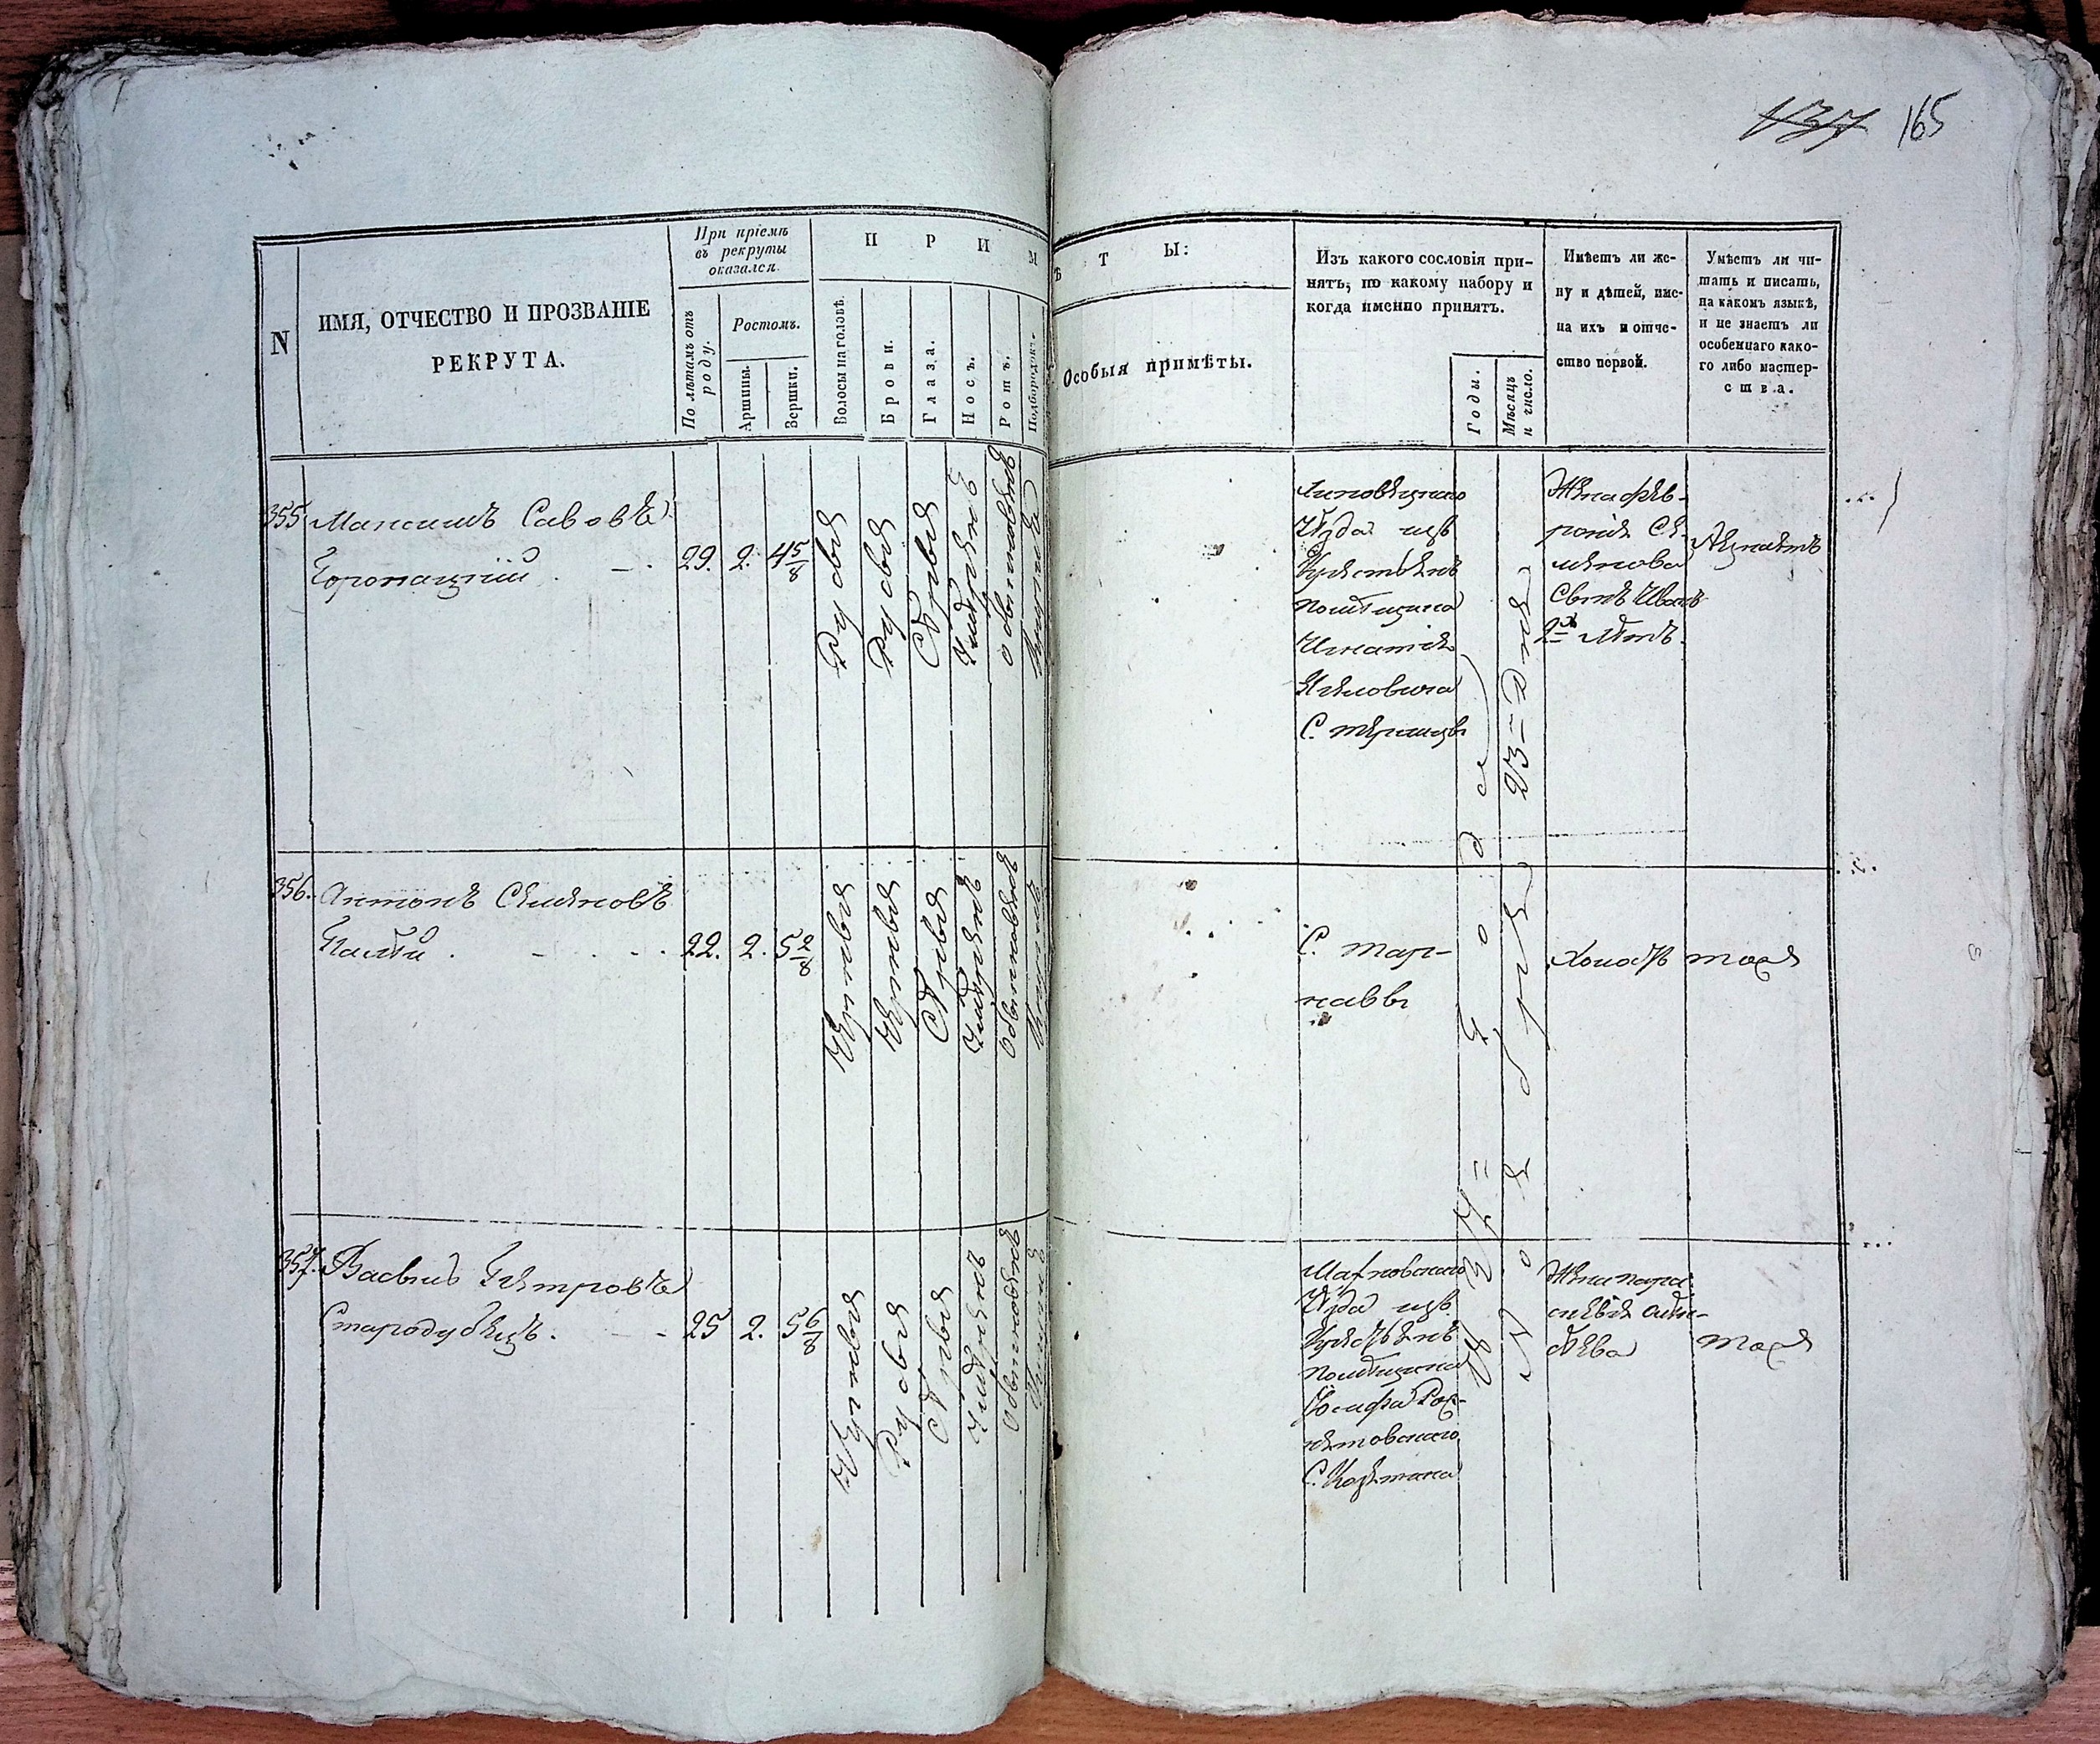 137 165
N
ИМЯ, ОТЧЕСТВО И ПРОЗВАНІЕ
РЕКРУТА.
При пріемѣ
въ рекруты
оказался.
По лѣтамъ отъ
роду.
Ростомъ.
Аршины.
Вершки.
П Р И М
Волосы на головѣ.
Брови.
Глаза.
Носъ.
Ротъ.
Подбородокъ.
Ѣ Т Ы:
Особыя примѣты.
Изъ какого сословія при-
нятъ, по какому набору и
когда именно принятъ.
Годы.
Мѣсяцъ
и число.
Имѣетъ ли же-
ну и дѣтей, име-
на ихъ и отче-
ство первой.
Умѣетъ ли чи-
тать и писать,
на какомъ языкѣ,
и не знаетъ ли
особеннаго како-
го либо мастер-
ства.
355 Максимъ Савовъ
29. 2. 4 5/8
Русыя
Русыя
Сѣрыя
Умѣренъ
обыкновенъ
Липовецкаго
Уѣзда изъ
Крестьянъ
помѣщика
Игнатія
Жена Фев-
ронія Се-
менова
Сынъ Иванъ
2 лѣтъ.
Незнаетъ
356. Антонъ Семеновъ
Палій
22. 2. 5 2/8
Черныя
Черныя
Сѣрыя
Умѣренъ
Обыкновенъ
С. Тар-
навы
Холостъ
тоже
357. Василь Петровъ
Стародубецъ.
25 2. 5 6/8
Черныя
Русыя
Сѣрыя
Умѣренъ
Обыкновенъ
Уѣзда изъ
Крестьянъ
помѣщика
Іосифа
тоже
года
Ноября 23 Дня